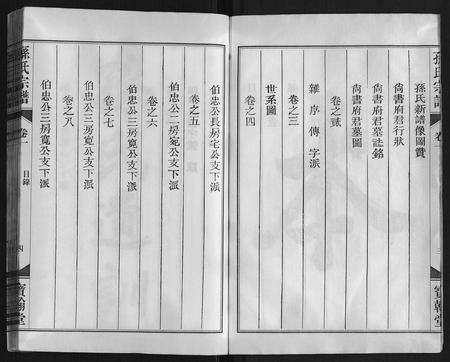 孫氏宗譜
卷一
孫氏新譜像圖贊
尙書府君行狀
尙書府君墓誌銘
尙書府君墓圖
卷之貳
雜序傳字派
卷之三
世系圖
卷之四
寶翰堂
伯忠公長房宅公支下派
卷之五
伯忠公二房宛公支下派
卷之六
伯忠公三房寬公支下派
卷之七
伯忠公三房寬公支下派
卷之八
伯忠公三房寬公支下派
孫氏宗譜
卷一
目錄
四
寶翰堂